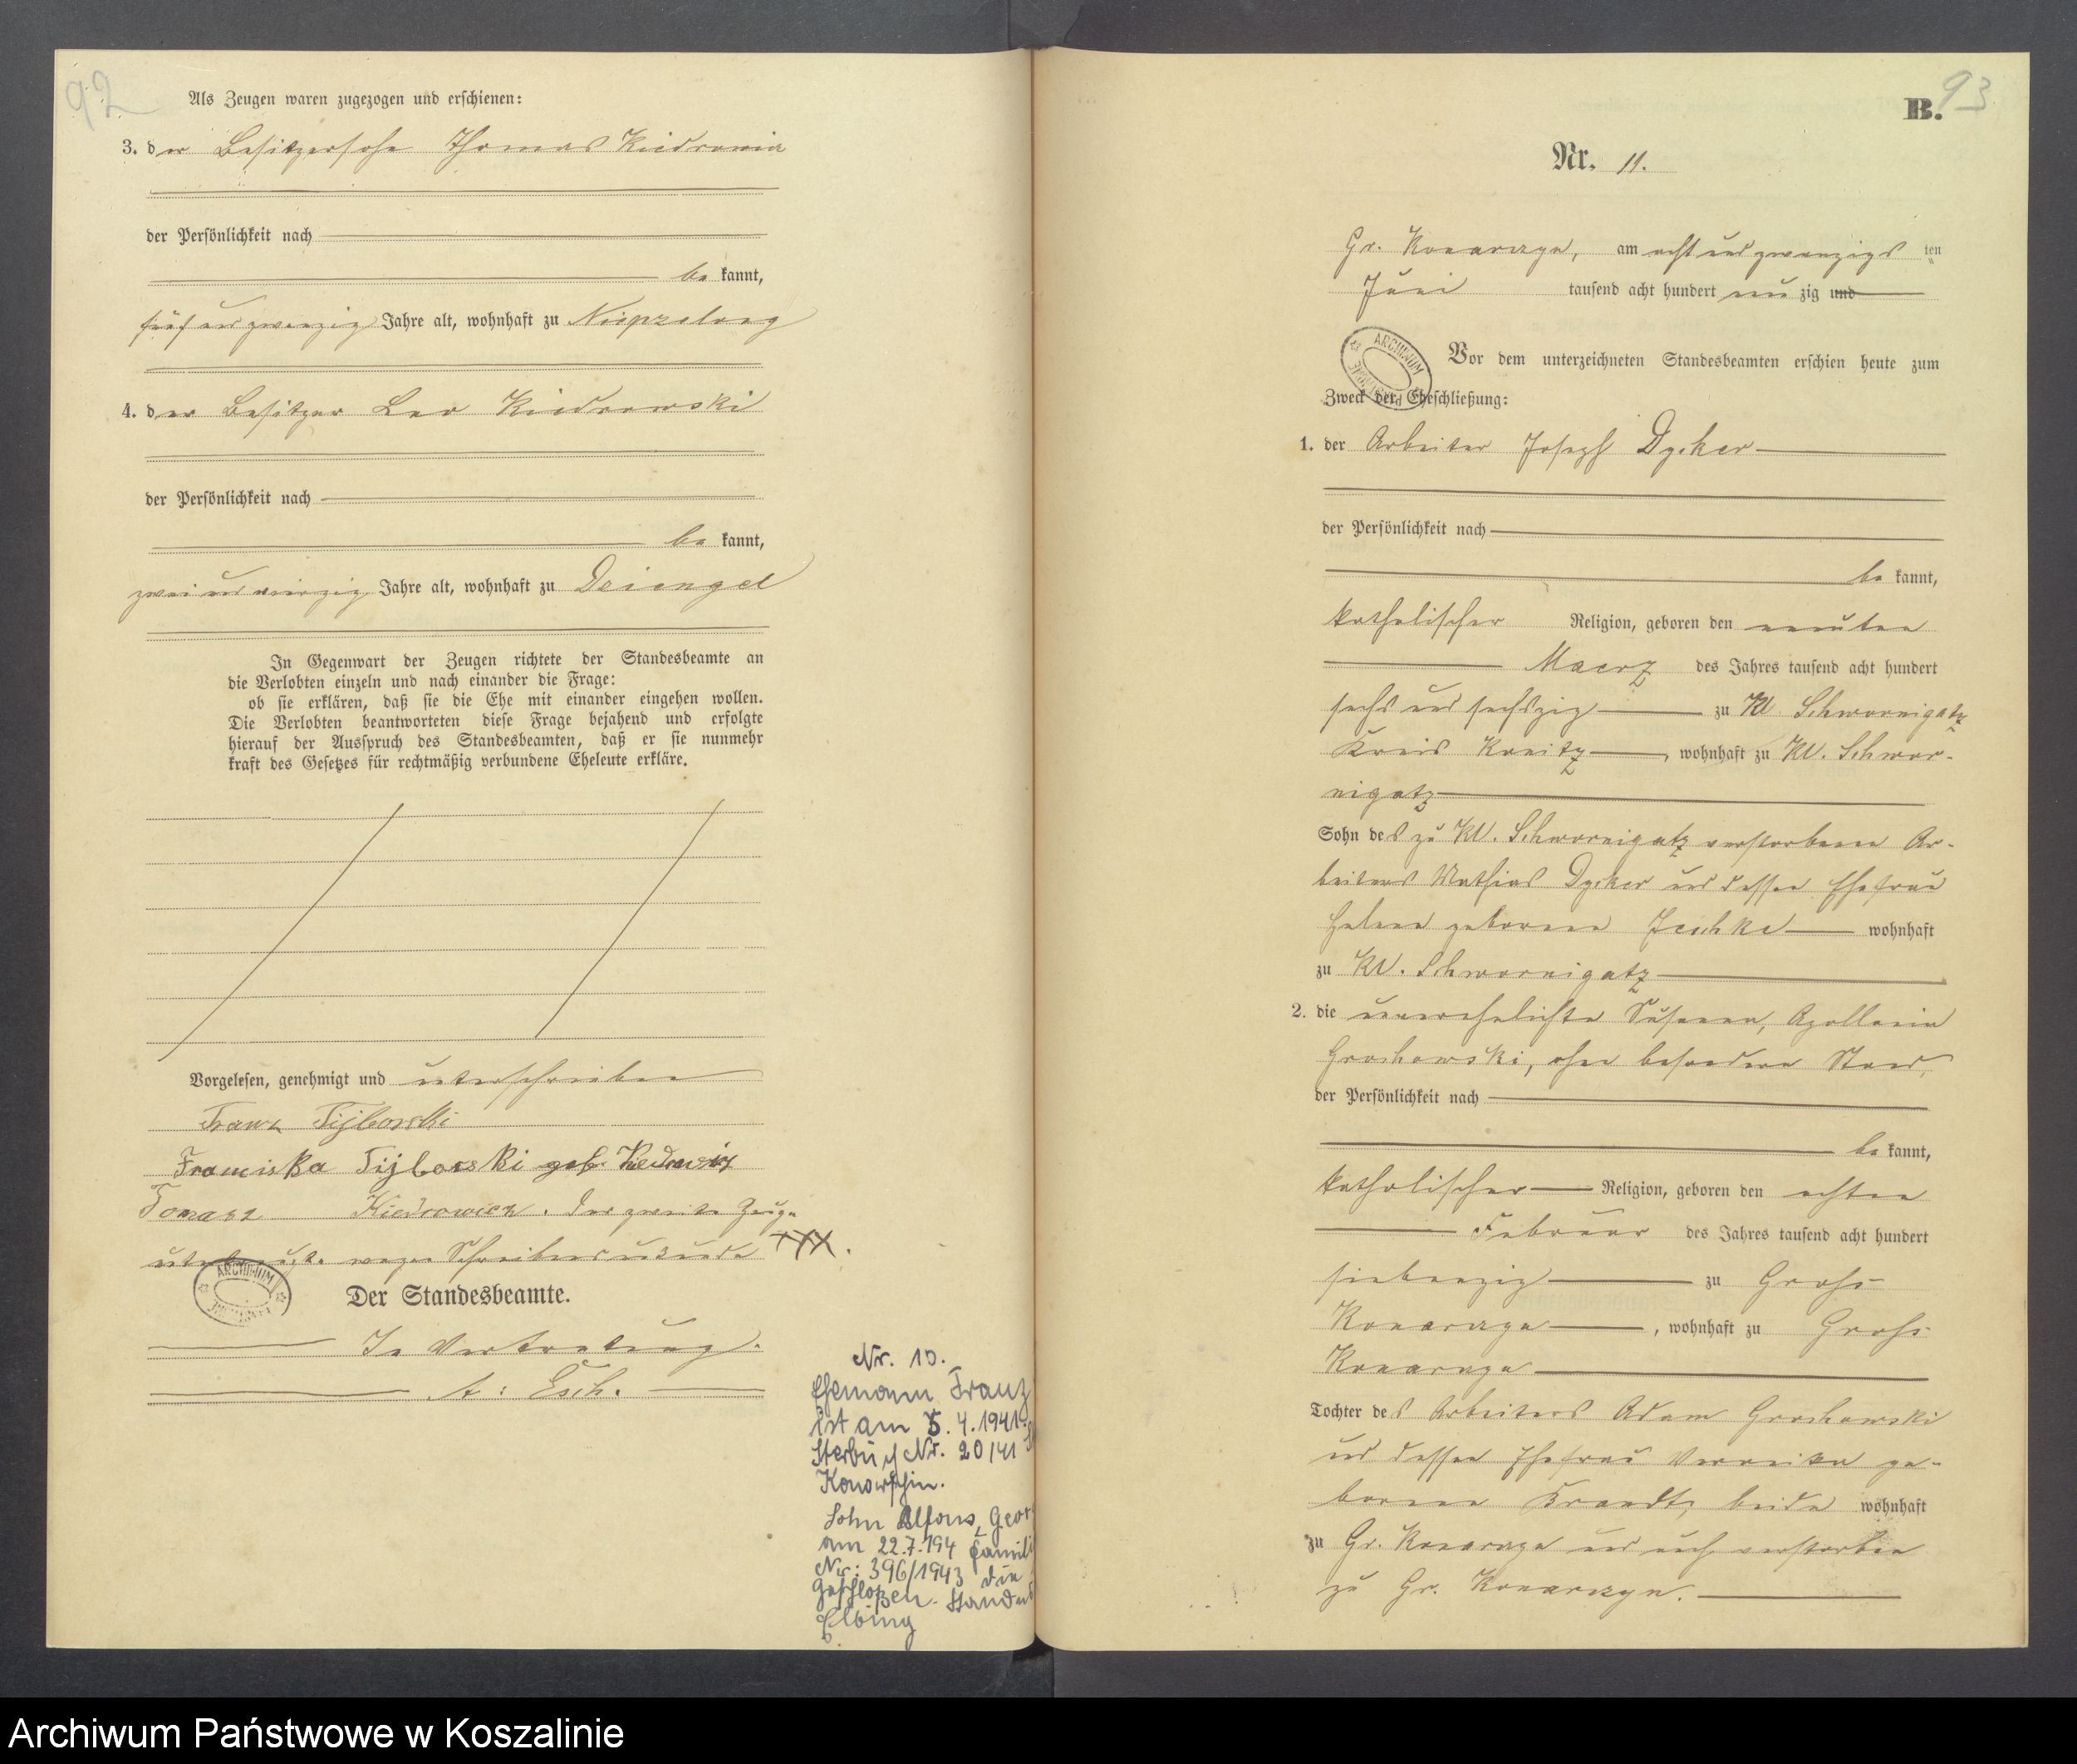 92
Als Zeugen waren zugezogen und erschienen:
3. der Besitzersohn Thomas
der Persönlichkeit nach
be kannt,
fünf und zwanzig Jahre alt, wohnhaft zu
4. der Besitzer Leo Kiedrowski
der Persönlichkeit nach
be kannt,
zwei und vierzig Jahre alt, wohnhaft zu
In Gegenwart der Zeugen richtete der Standesbeamte an
die Verlobten einzeln und nach einander die Frage:
ob sie erklären, daß sie die Ehe mit einander eingehen wollen.
Die Verlobten beantworteten diese Frage bejahend und erfolgte
hierauf der Ausspruch des Standesbeamten, daß er sie nunmehr
kraft des Gesetzes für rechtmäßig verbundene Eheleute erkläre.
Vorgelesen, genehmigt und unterschrieben
Franz
Franciska geb.
Tomasz Kiedrowicz. Der zweite Zeuge
wegen Schreibensunkunde XXX.
ARCHIWUM
Der Standesbeamte.
In Vertretung.
A: Esch.
Nr. 10.
Ehemann Franz
ist am 5.4.1941
Sterbuch Nr. 20/41
Sohn Alfons, Geor
am 22.7.194 Famili
Nr: 396/1943 die
geschloßen. Standes
Elbing
93
B.
Nr. 11.
Gr. Konarczyn, am acht und zwanzigs ten
Juni tausend acht hundert neun zig und
ARCHIWUM
Vor dem unterzeichneten Standesbeamten erschien heute zum
Zweck der Eheschließung:
1. der Arbeiter Joseph Dycker
der Persönlichkeit nach
be kannt,
katholischer Religion, geboren den neunten
Maerz des Jahres tausend acht hundert
sechs und sechszig zu Kl Schwornigatz
Kreis Konitz, wohnhaft zu Kl. Schwor-
nigatz
Sohn des zu Kl. Schwornigatz verstorbenen Ar-
beiters Mathias Dycker und dessen Ehefrau
Helene geborene Jeschke wohnhaft
zu Kl. Schwornigatz
2. die unverehelichte Susanna, Apollonia
Grochowski, ohne besonderen Stand,
der Persönlichkeit nach
be kannt,
katholischer Religion, geboren den achten
Februar des Jahres tausend acht hundert
siebenzig zu Groß
Konarczyn, wohnhaft zu Groß
Konarczyn
Tochter des Arbeiters Adam Grochowski
und dessen Ehefrau Veronika ge-
borene Brandt, beide wohnhaft
zu Gr. Konarczyn und verstorben
zu Gr. Konarczyn.
Archiwum Państwowe w Koszalinie